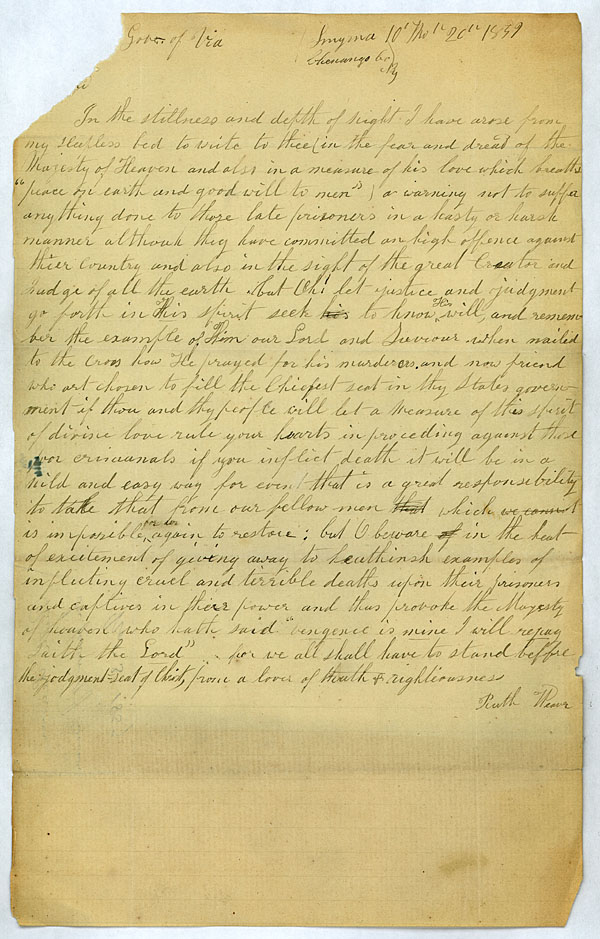 Gover. of Via Smyrna 10th Mo th 20th 1859
Chenango Co
Ny
In the stillness and depth of night I have arose from
my sleepless bed to write to thee (in the fear and dread of the
Majesty of Heaven and also in a measure of his love which breaths
"peace on earth and good will to men") a warning not to suffer
anything done to those late prisoners in a hasty or harsh
manner althouh they have committed an high offence against
thier Country and also in the sight of the great Creator and
Judge of all the earth but Oh! let justice and judgment
go forth in this spirit seek his to know His will, and remem
ber the example of Him our Lord and Saviour when nailed
to the Cross how He prayed for his murderers, and now friend
who art chosen to fill the Chiefest seat in thy States govern
ment if thou and thy people will let a Measure of this spirit
of divine love rule your hearts in proceding against those
poor crimanals if you inflict death it will be in a
mild and easy way for even that is a great responsibility
to take that from our fellow men that which we cannot
is imposible for us again to restore; but O beware of in the heat
of excitement of giving away to heathinsh examples of
inflicting cruel and terrible deaths upon their prisoners
and captives in their power and thus provoke the Majesty
of heaven who hath said "vengence is mine I will repay
saith the Lord" for we all shall have to stand before
the judgment Seat of Christ, from a lover of truth & rightiousness
Ruth Weavr